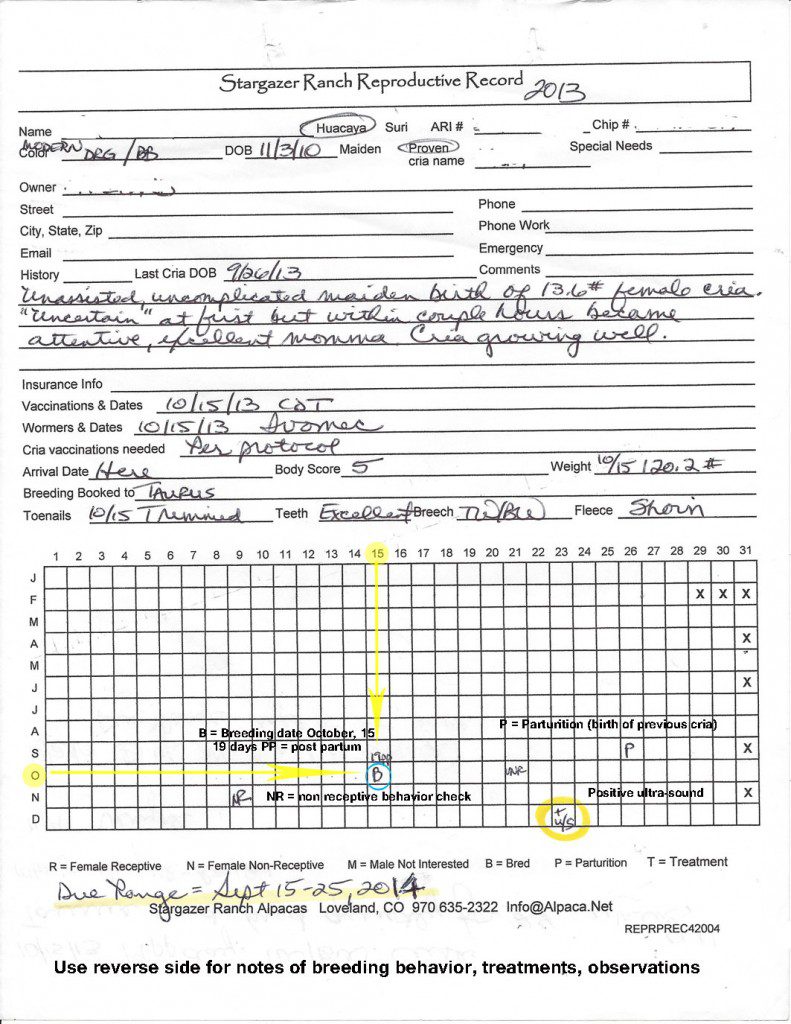 Stargazer Ranch Reproductive Record 2013
Name Huacaya Suri ARI # Chip #
MODERN
Color DRG/BB DOB 11/3/10 Maiden Proven Special Needs
cria name
Owner
Street Phone
City, State, Zip Phone Work
Email Emergency
History Last Cria DOB 9/26/13 Comments
Unassisted, uncomplicated maiden birth of 13.6# female cria.
"Uncertain" at first but within couple hours became
attentive, excellent momma. Cria growing well.
Insurance Info
Vaccinations & Dates 10/15/13 CDT
Wormers & Dates 10/15/13 Ivomec
Cria vaccinations needed Per protocol
Arrival Date Here Body Score 5 Weight 10/15 120.2#
Breeding Booked to TAURUS
Toenails 10/15 Trimmed Teeth Excellent Breech Fleece Shorn
1 2 3 4 5 6 7 8 9 10 11 12 13 14 15 16 17 18 19 20 21 22 23 24 25 26 27 28 29 30 31
J
F X X X
M
A X
M
J X
J
A B = Breeding date October, 15 P = Parturition (birth of previous cria)
S 19 days PP = post partum 19pp P X
O B NR
N NR NR = non receptive behavior check Positive ultra-sound X
D + u/s
R = Female Receptive N = Female Non-Receptive M = Male Not Interested B = Bred P = Parturition T = Treatment
Due Range = Sept 15-25, 2014
Stargazer Ranch Alpacas Loveland, CO 970 635-2322 Info@Alpaca.Net
REPRPREC42004
Use reverse side for notes of breeding behavior, treatments, observations